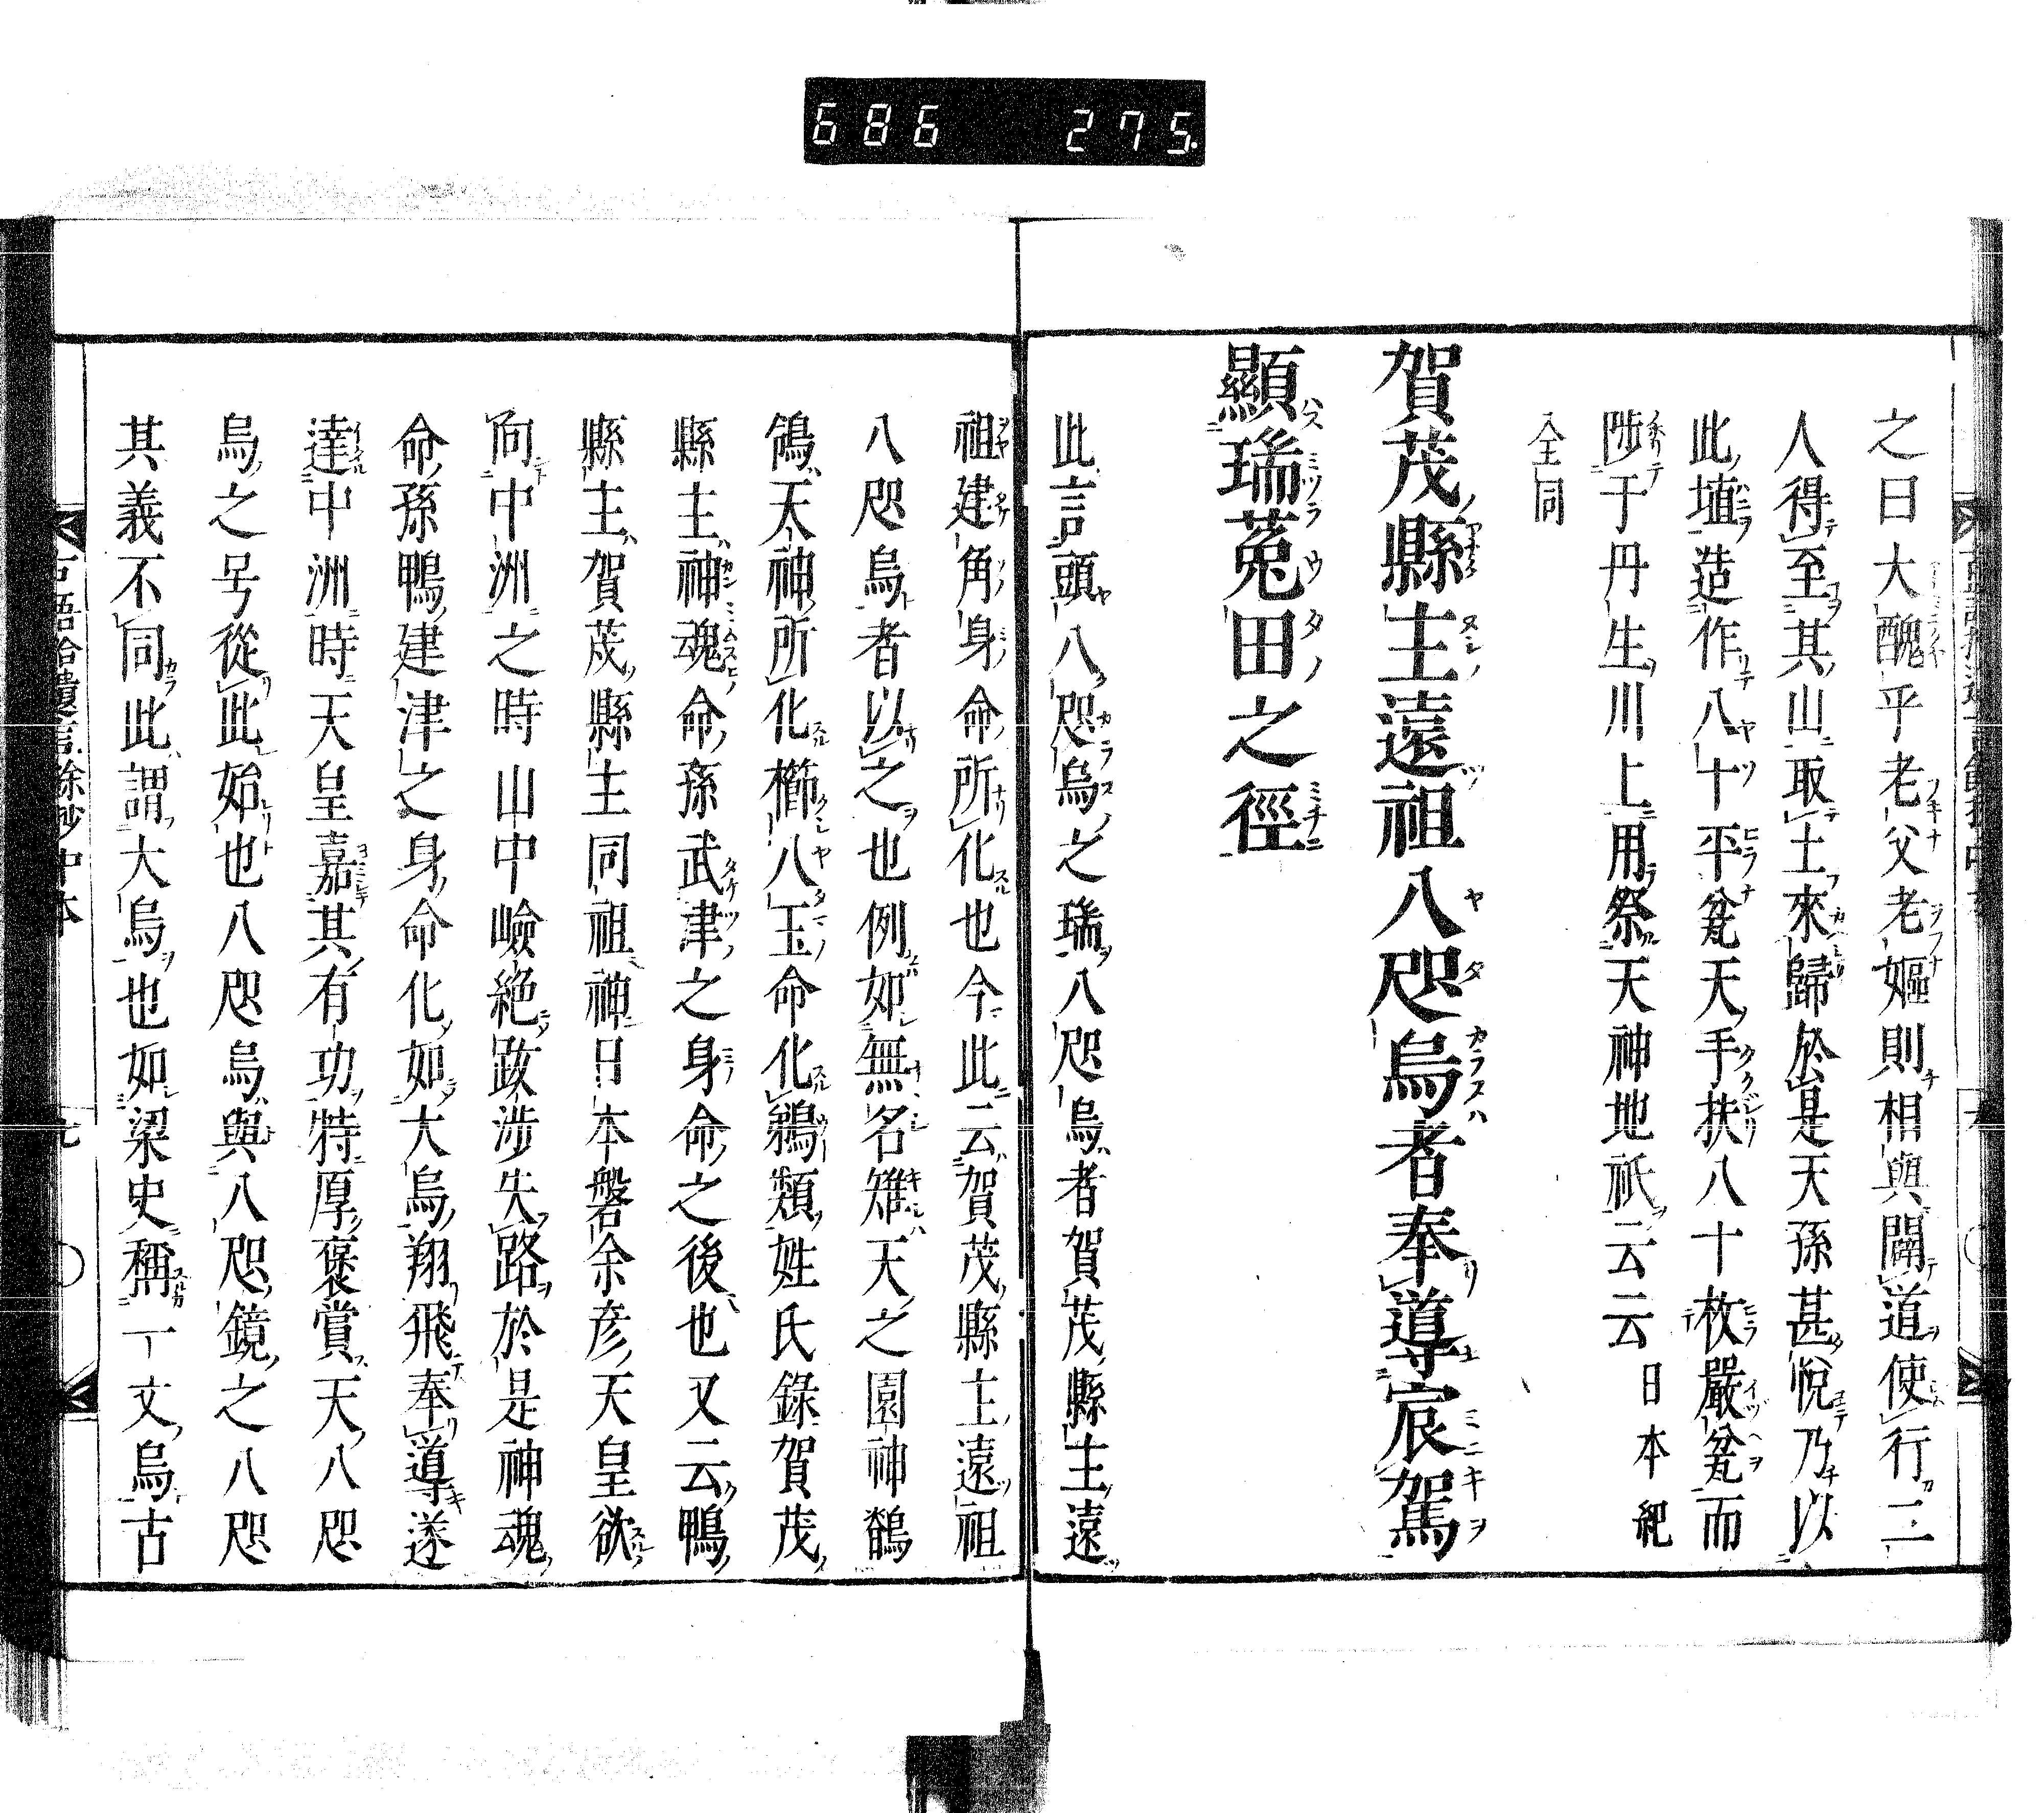 686 275
之曰大醜乎老父老嫗則相與闢道使行二
人得至其山取土來歸於是天孫甚悅乃以
此埴造作八十平瓮天手抉八十枚嚴瓮而
陟于丹生川上用祭天神地祇云云日本紀
全同
賀茂縣主遠祖八咫烏者奉導宸駕
顯瑞菟田之徑
此言頭八咫烏之瑞八咫烏者賀茂縣主遠
祖建角身命所化也今此云賀茂縣主遠祖
八咫烏者以之也例如無名雉天之園神鵠
鴿天神所化櫛八玉命化鵜類姓氏錄賀茂
縣主神魂命孫武津之身命之後也又云鴨
縣主賀茂縣主同祖神日本磐余彥天皇欲
向中洲之時山中嶮絕跋涉失路於是神魂
命孫鴨建津之身命化如大烏翔飛奉導遂
達中洲時天皇嘉其有功特厚褒賞天八咫
烏之号從此始也八咫烏與八咫鏡之八咫
其義不同此謂大烏也如梁史稱丁文烏古
古語拾遺言餘抄中本
九